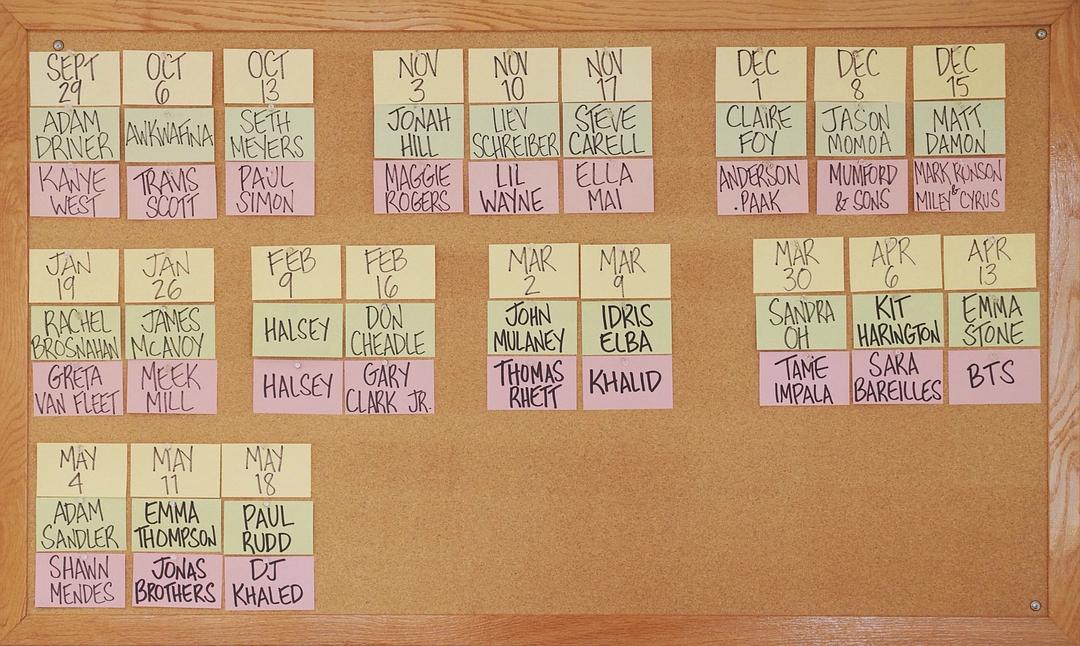 SEPT
29
ADAM
DRIVER
KANYE
WEST
OCT
6
AWKWAFINA
TRAVIS
SCOTT
OCT
13
SETH
MEYERS
PAUL
SIMON
NOV
3
JONAH
HILL
MAGGIE
ROGERS
NOV
10
LIEV
SCHREIBER
LIL
WAYNE
NOV
17
STEVE
CARELL
ELLA
MAI
DEC
1
CLAIRE
FOY
ANDERSON
.PAAK
DEC
8
JASON
MOMOA
MUMFORD
& SONS
DEC
15
MATT
DAMON
MARK RONSON
&
MILEY CYRUS
JAN
19
RACHEL
BROSNAHAN
GRETA
VAN FLEET
JAN
26
JAMES
McAVOY
MEEK
MILL
FEB
9
HALSEY
HALSEY
FEB
16
DON
CHEADLE
GARY
CLARK JR.
MAR
2
JOHN
MULANEY
THOMAS
RHETT
MAR
9
IDRIS
ELBA
KHALID
MAR
30
SANDRA
OH
TAME
IMPALA
APR
6
KIT
HARINGTON
SARA
BAREILLES
APR
13
EMMA
STONE
BTS
MAY
4
ADAM
SANDLER
SHAWN
MENDES
MAY
11
EMMA
THOMPSON
JONAS
BROTHERS
MAY
18
PAUL
RUDD
DJ
KHALED